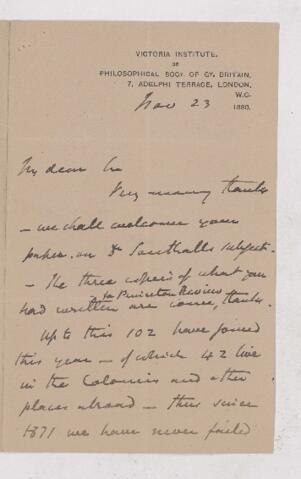 VICTORIA INSTITUTE,
OR
PHILOSOPHICAL SOCY. OF GT. BRITAIN,
7, ADELPHI TERRACE, LONDON,
W.C.
Nov 23 1880.
My dear Sir
Very many thanks
– we shall welcome your
paper on Dr Southall's subject –
– The three copies of what you
to Princeton Review
had written are come, thanks.
Up to this 102 have joined
this year – of which 42 live
in the Colonies and other
places abroad – thus since
1871 we have never failed